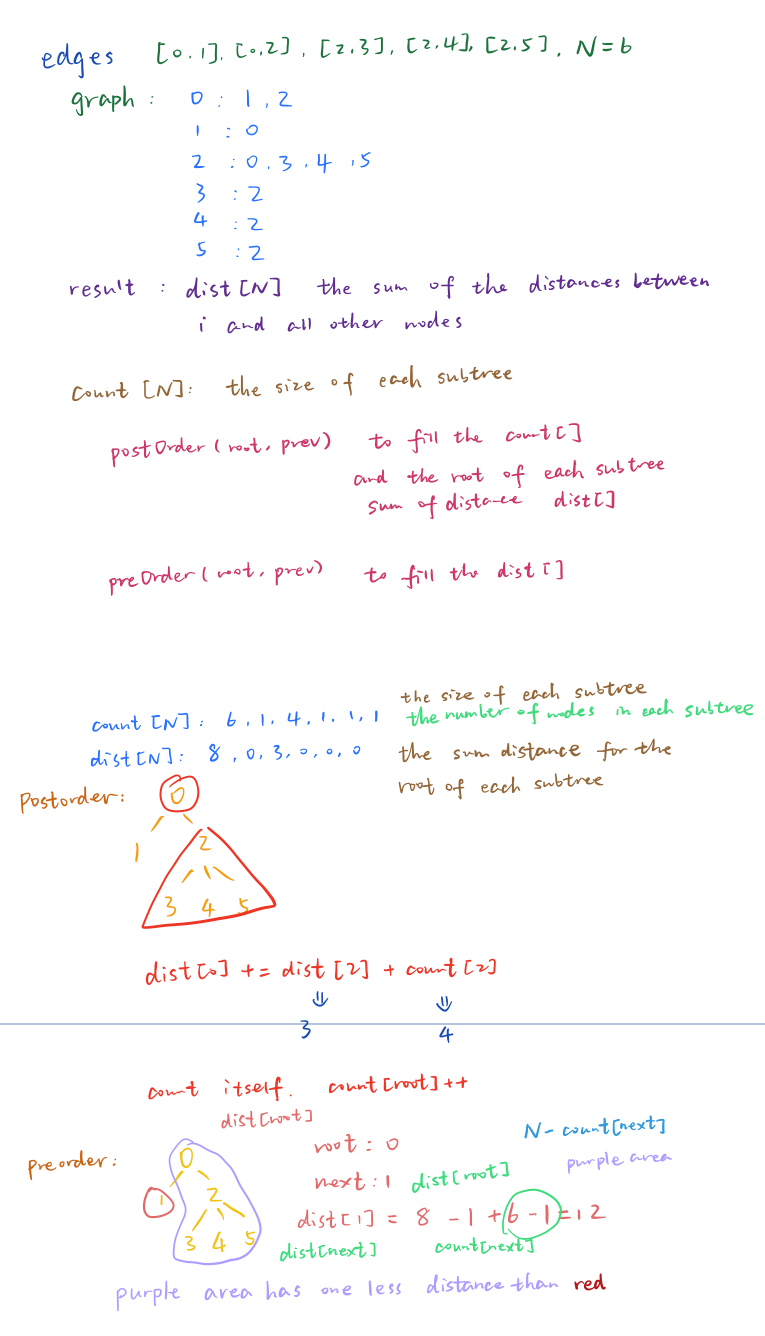 edges [0,1], [0,2], [2,3], [2,4], [2,5], N=6
graph : 0 : 1, 2
1 : 0
2 : 0, 3, 4, 5
3 : 2
4 : 2
5 : 2
result : dist [N] the sum of the distances between
i and all other nodes
Count [N]: the size of each subtree
postOrder (root, prev) to fill the count[]
and the root of each subtree
sum of distance dist[]
preOrder (root, prev) to fill the dist []
the size of each subtree
count [N]: 6, 1, 4, 1, 1, 1 the number of nodes in each subtree
dist [N]: 8, 0, 3, 0, 0, 0 the sum distance for the
root of each subtree
Postorder: 0
1 2
3 4 5
dist[0] += dist[2] + count[2]
⇓ ⇓
3 4
count itself. count[root]++
dist[root]
N - count[next]
root : 0
Preorder: 0
purple area
next : 1 dist[root]
1 2
dist[1] = 8 - 1 + 6 - 1 = 12
3 4 5
dist[next] count[next]
purple area has one less distance than red